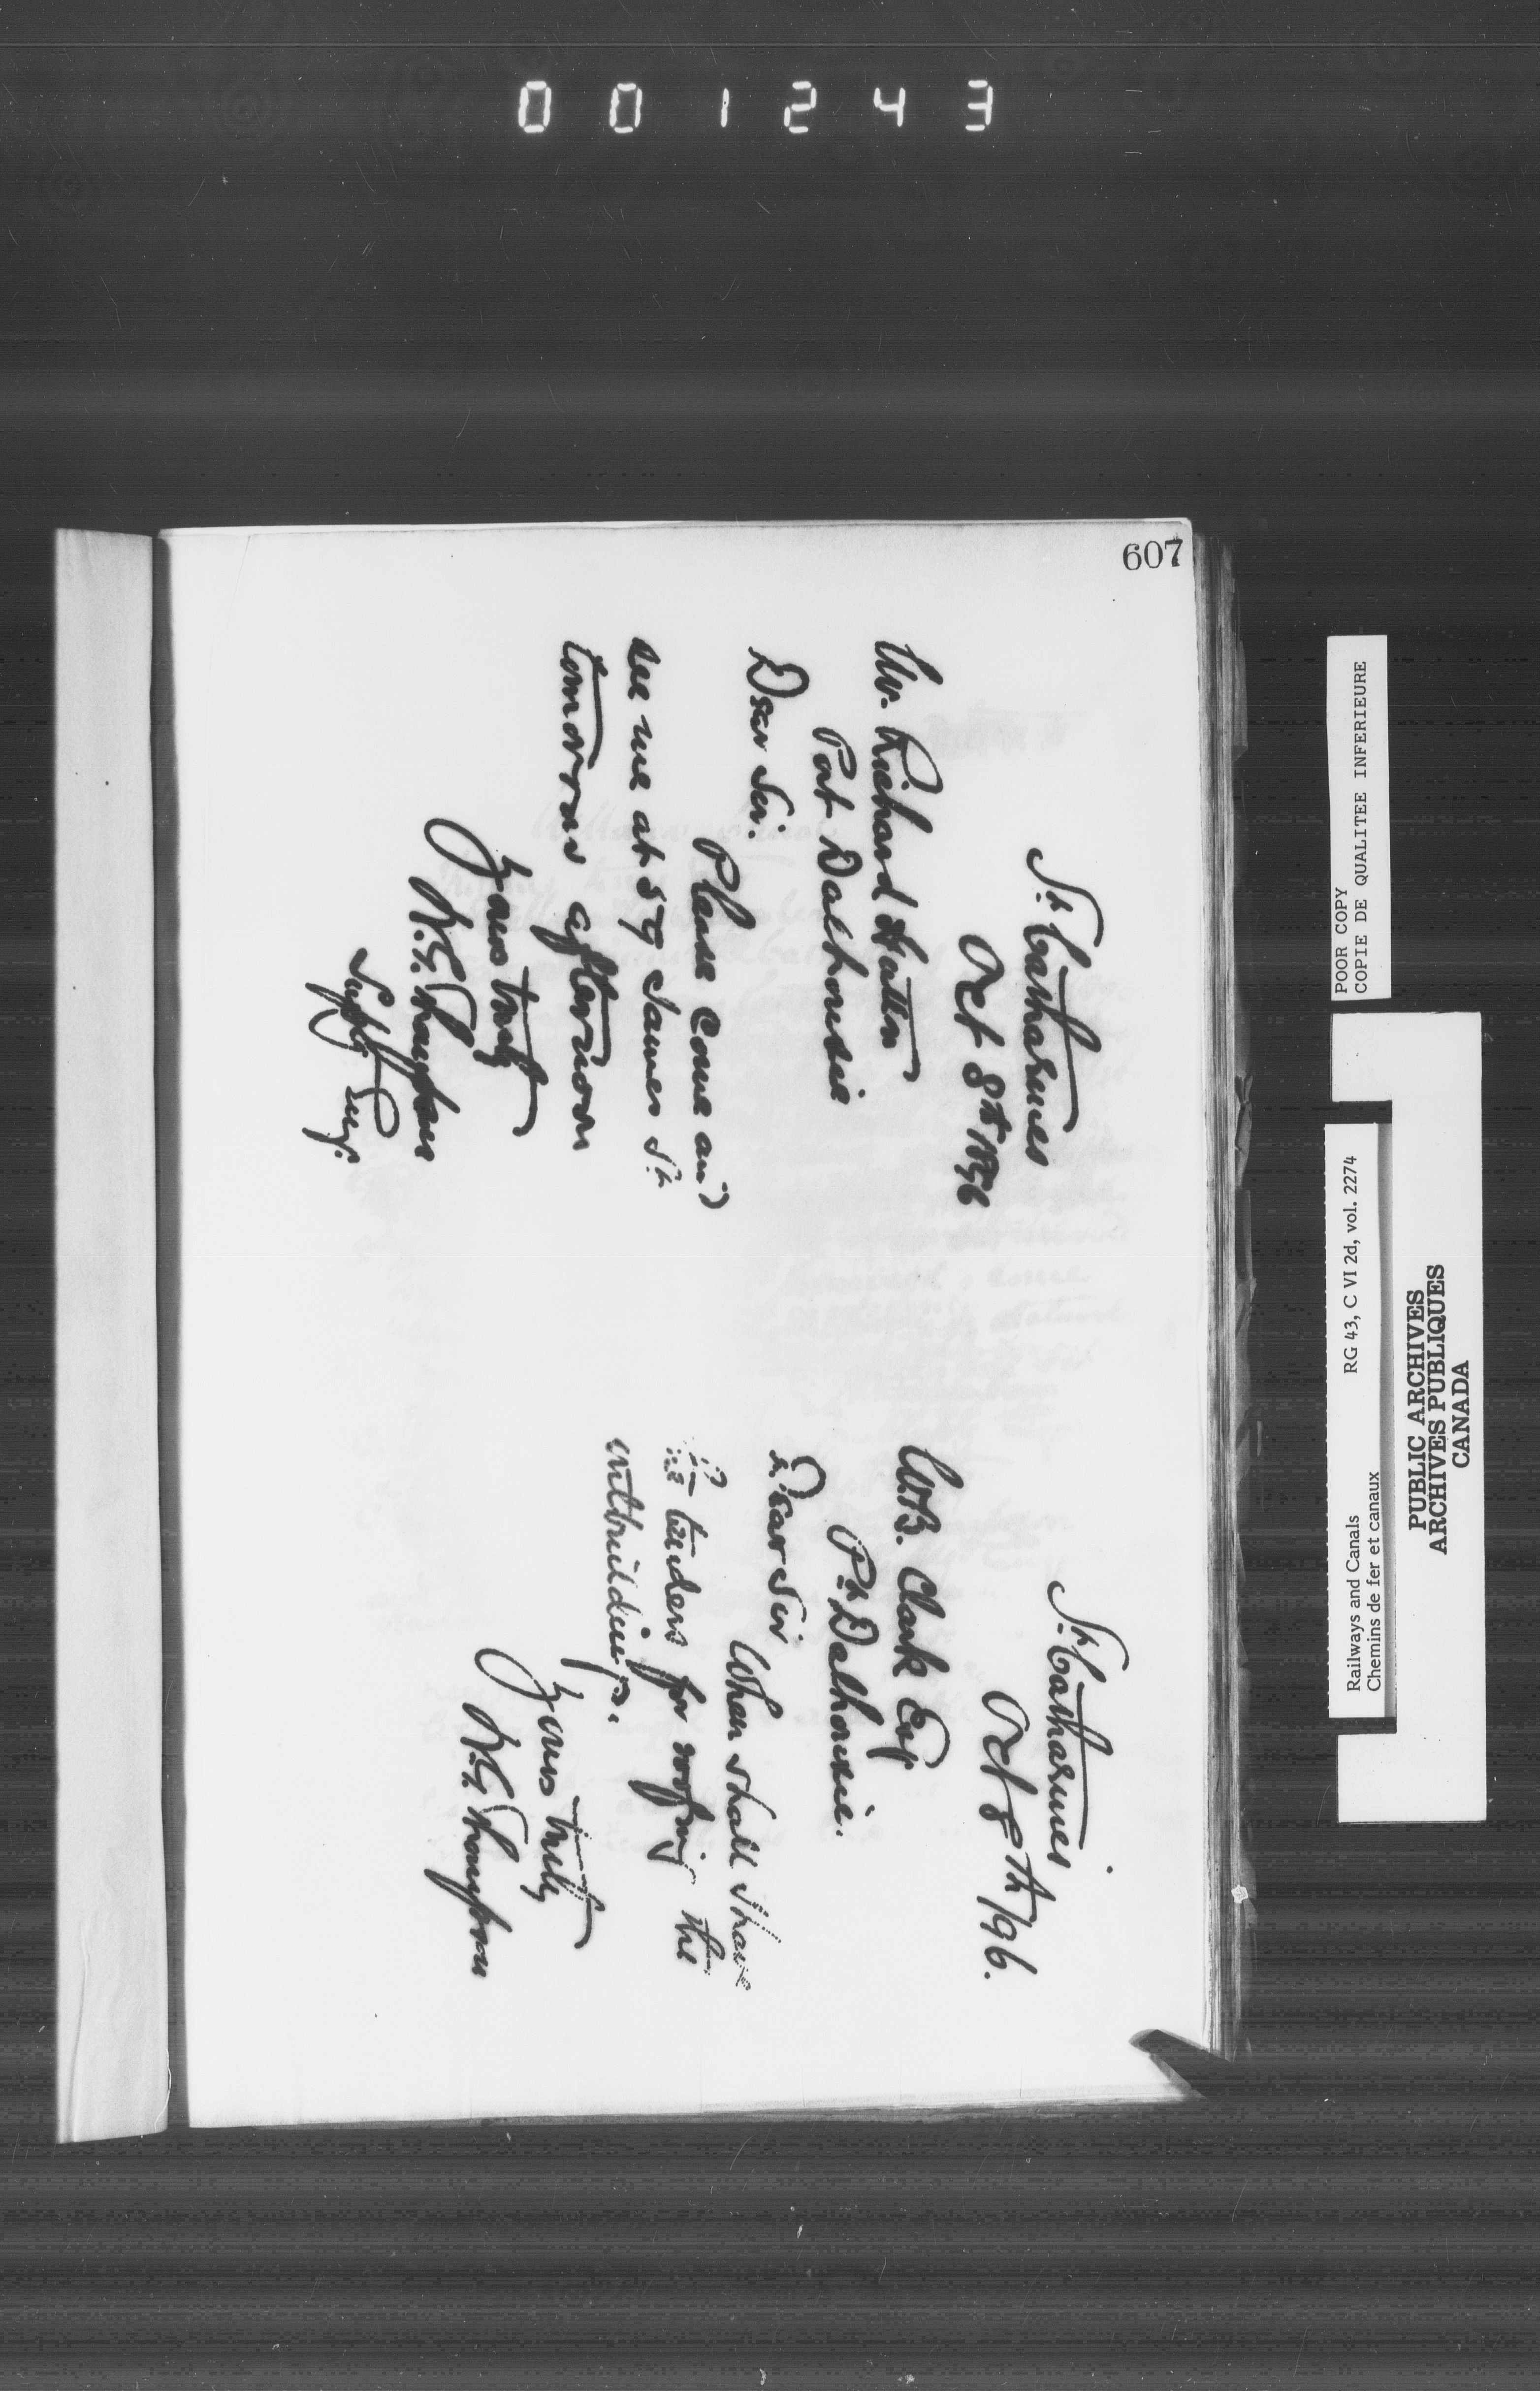 001243
607
St. Catharines
Oct 8th 1896
Mr. Richard Hutton
Port Dalhousie
Dear Sir.
Please come and
see me at 59 James St.
tomorrow afternoon
Yours truly
W.G. Thompson
Suptg Engr.
St. Catharines
Oct 8th /96.
W.B. Clark Esq
Pt. Dalhousie.
Dear Sir
When shall I have
the tenders for roofing the
outbuildings.
Yours truly
W.G. Thompson
POOR COPY
COPIE DE QUALITEE INFERIEURE
Railways and Canals RG 43, C VI 2d, vol. 2274
Chemins de fer et canaux
PUBLIC ARCHIVES
ARCHIVES PUBLIQUES
CANADA